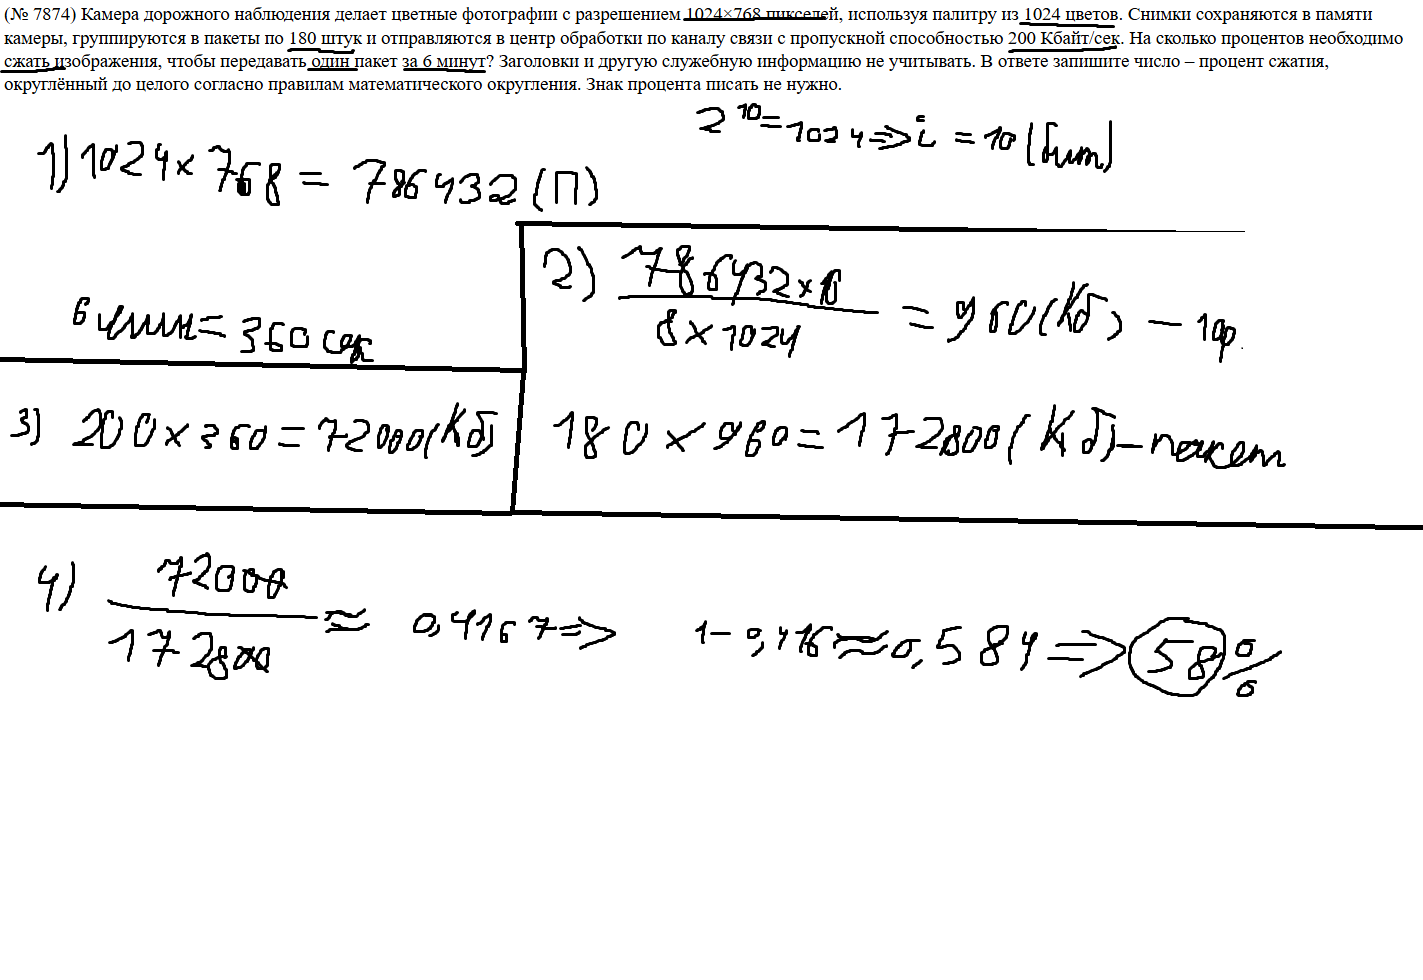 (№ 7874) Камера дорожного наблюдения делает цветные фотографии с разрешением 1024×768 пикселей, используя палитру из 1024 цветов. Снимки сохраняются в памяти
камеры, группируются в пакеты по 180 штук и отправляются в центр обработки по каналу связи с пропускной способностью 200 Кбайт/сек. На сколько процентов необходимо
сжать изображения, чтобы передавать один пакет за 6 минут? Заголовки и другую служебную информацию не учитывать. В ответе запишите число – процент сжатия,
округлённый до целого согласно правилам математического округления. Знак процента писать не нужно.
2^10 = 1024 => i = 10 (бит)
1) 1024 × 768 = 786432 (П)
2) 786432 × 10 / 8 × 1024 = 960 (Кб) – 1ф.
6 мин = 360 сек
3) 200 × 360 = 72000 (Кб)
180 × 960 = 172800 (Кб) – пакет
4) 72000 / 172800 ≈ 0,4167 =>
1 – 0,416 ≈ 0,584 => 58 %